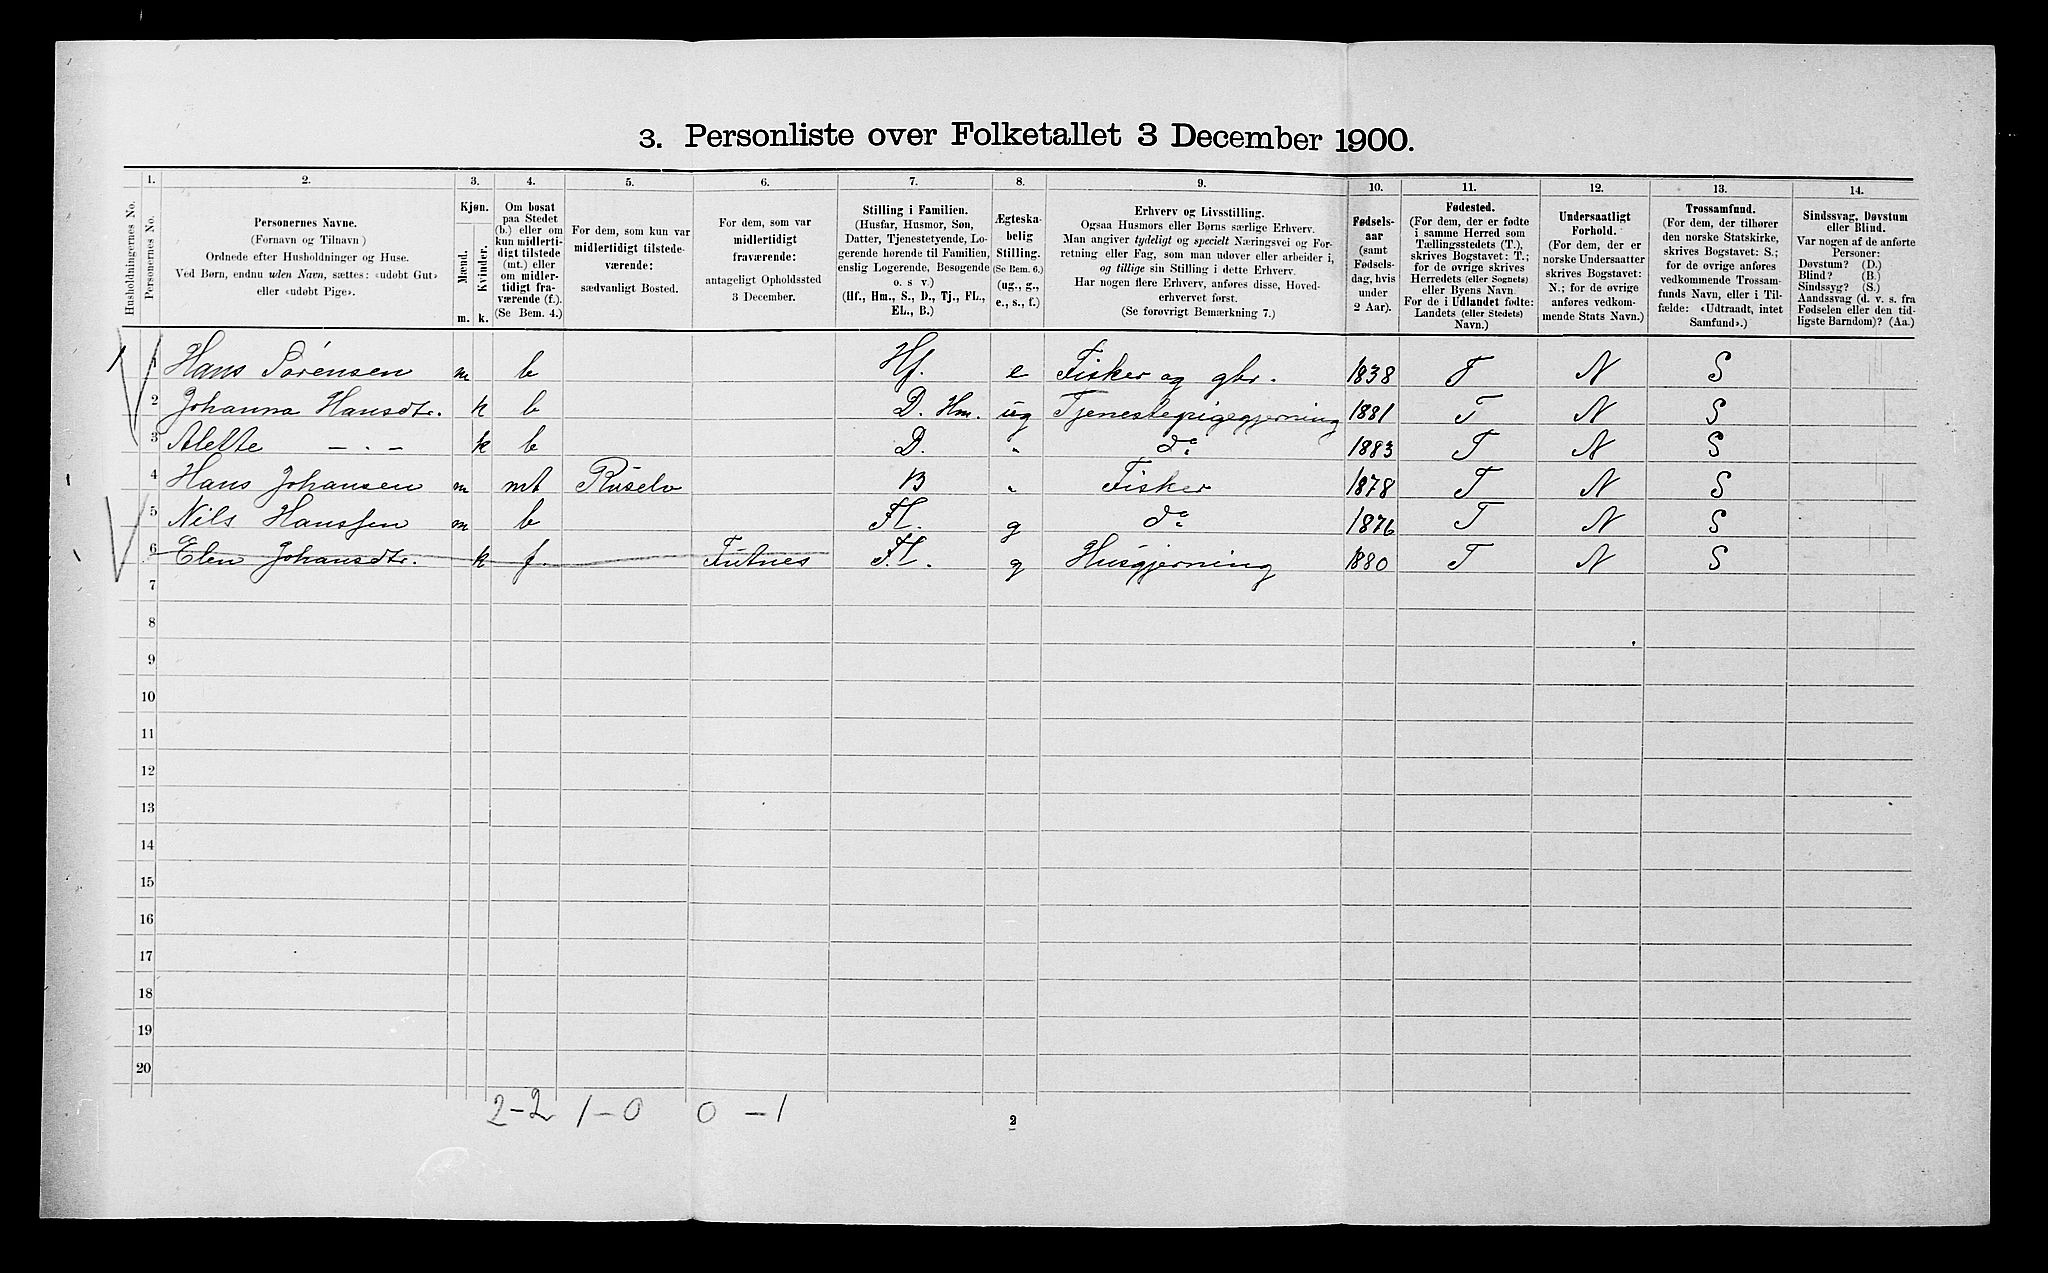 3. Personliste over Folketallet 3 December 1900.
Husholdningernes No.
1. Personernes No.
2. Personernes Navne.
(Fornavn og Tilnavn)
Ordnede efter Husholdninger og Huse.
Ved Børn, endnu uden Navn, sættes: «udøbt Gut»
eller «udøbt Pige».
3. Kjøn.
Mænd. Kvinder.
m. k.
4. Om bosat
paa Stedet
(b.) eller om
kun midlerti-
digt tilstede
(mt.) eller
om midler-
tidigt fra-
værende (f.).
(Se Bem. 4.)
5. For dem, som kun var
midlertidigt tilstede-
værende:
sædvanligt Bosted.
6. For dem, som var
midlertidigt
fraværende:
antageligt Opholdssted
3 December.
7. Stilling i Familien.
(Husfar, Husmor, Søn,
Datter, Tjenestetyende, Lo-
gerende hørende til Familien,
enslig Logerende, Besøgende
o. s v.)
(Hf., Hm., S., D., Tj., FL.,
EL., B.)
8. Ægteska-
belig
Stilling.
(Se Bem. 6.)
(ug., g.,
e., s., f.)
9. Erhverv og Livsstilling.
Ogsaa Husmors eller Børns særlige Erhverv.
Man angiver tydeligt og specielt Næringsvei og For-
retning eller Fag, som man udøver eller arbeider i,
og tillige sin Stilling i dette Erhverv.
Har nogen flere Erhverv, anføres disse, Hoved-
erhvervet først.
(Se forøvrigt Bemærkning 7.)
10. Fødsels-
aar
(samt
Fødsels-
dag, hvis
under
2 Aar).
11. Fødested.
(For dem, der er fødte
i samme Herred som
Tællingsstedets (T.),
skrives Bogstavet: T.;
for de øvrige skrives
Herredets (eller Sognets)
eller Byens Navn.
For de i Udlandet fødte:
Landets (eller Stedets)
Navn.)
12. Undersaatligt
Forhold.
(For dem, der er
norske Undersaatter
skrives Bogstavet:
N.; for de øvrige
anføres vedkom-
mende Stats Navn.)
13. Trossamfund.
(For dem, der tilhører
den norske Statskirke,
skrives Bogstavet: S.;
for de øvrige anføres
vedkommende Trossam-
funds Navn, eller i Til-
fælde: «Udtraadt, intet
Samfund».)
14. Sindssvag, Døvstum
eller Blind.
Var nogen af de anførte
Personer:
Døvstum? (D.)
Blind? (B.)
Sindssyg? (S.)
Aandssvag (d. v. s. fra
Fødselen eller den tid-
ligste Barndom)? (Aa.)
1 1 Hans Sørensen m b Hf. e Fisker og gbr. 1838 T N S
2 Johanna Hansdtr. k b D. Hm. ug Tjenestepigegjerning 1881 T N S
3 Alette — " — k b D. " do 1883 T N S
4 Hans Johansen m mt Ruselv B " Fisker 1878 T N S
5 Nils Hanssen m b FL. g do 1876 T N S
6 Elen Johansdtr. k f. Futnes FL. g Husgjerning 1880 T N S
7
8
9
10
11
12
13
14
15
16
17
18
19
20
2-2 1-0 0-1
2